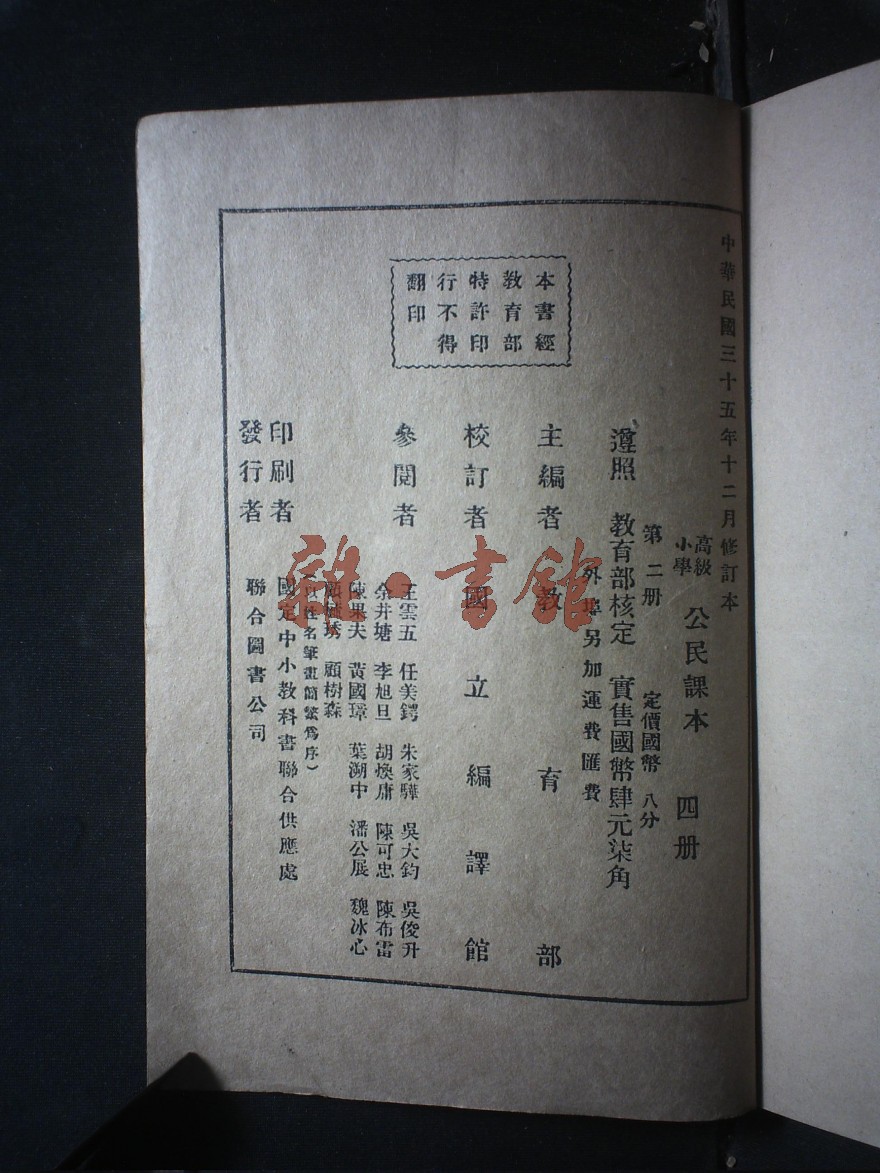 中華民國三十五年十二月修訂本
高級
小學
公民課本 四册
第二册 定價國幣 八分
遵照 教育部核定 實售國幣肆元柒角
外埠另加運費匯費
本書經
教育部
特許印
行不得
翻印
主編者 教育部
校訂者 國立編譯館
參閱者
王雲五 任美鍔 朱家驊 吳大鈞 吳俊升
余井塘 李旭旦 胡煥庸 陳可忠 陳布雷
陳果夫 黃國璋 葉溯中 潘公展 魏冰心
顧樹森
(以姓名筆畫簡繁爲序)
印刷者
發行者
國定中小教科書聯合供應處
聯合圖書公司
雜·書館